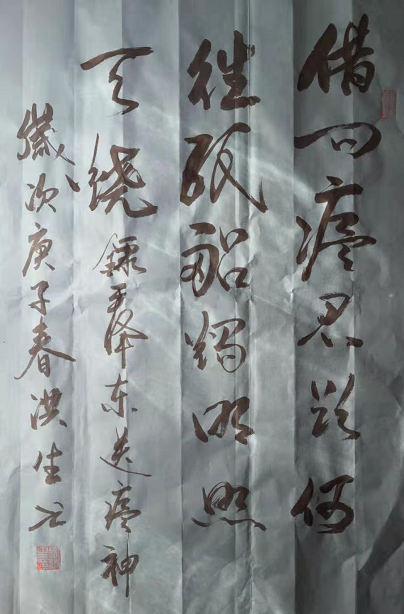 借问瘟君欲何
往纸船燭明照
天烧 録毛泽东送瘟神
歲次庚子春洪生书